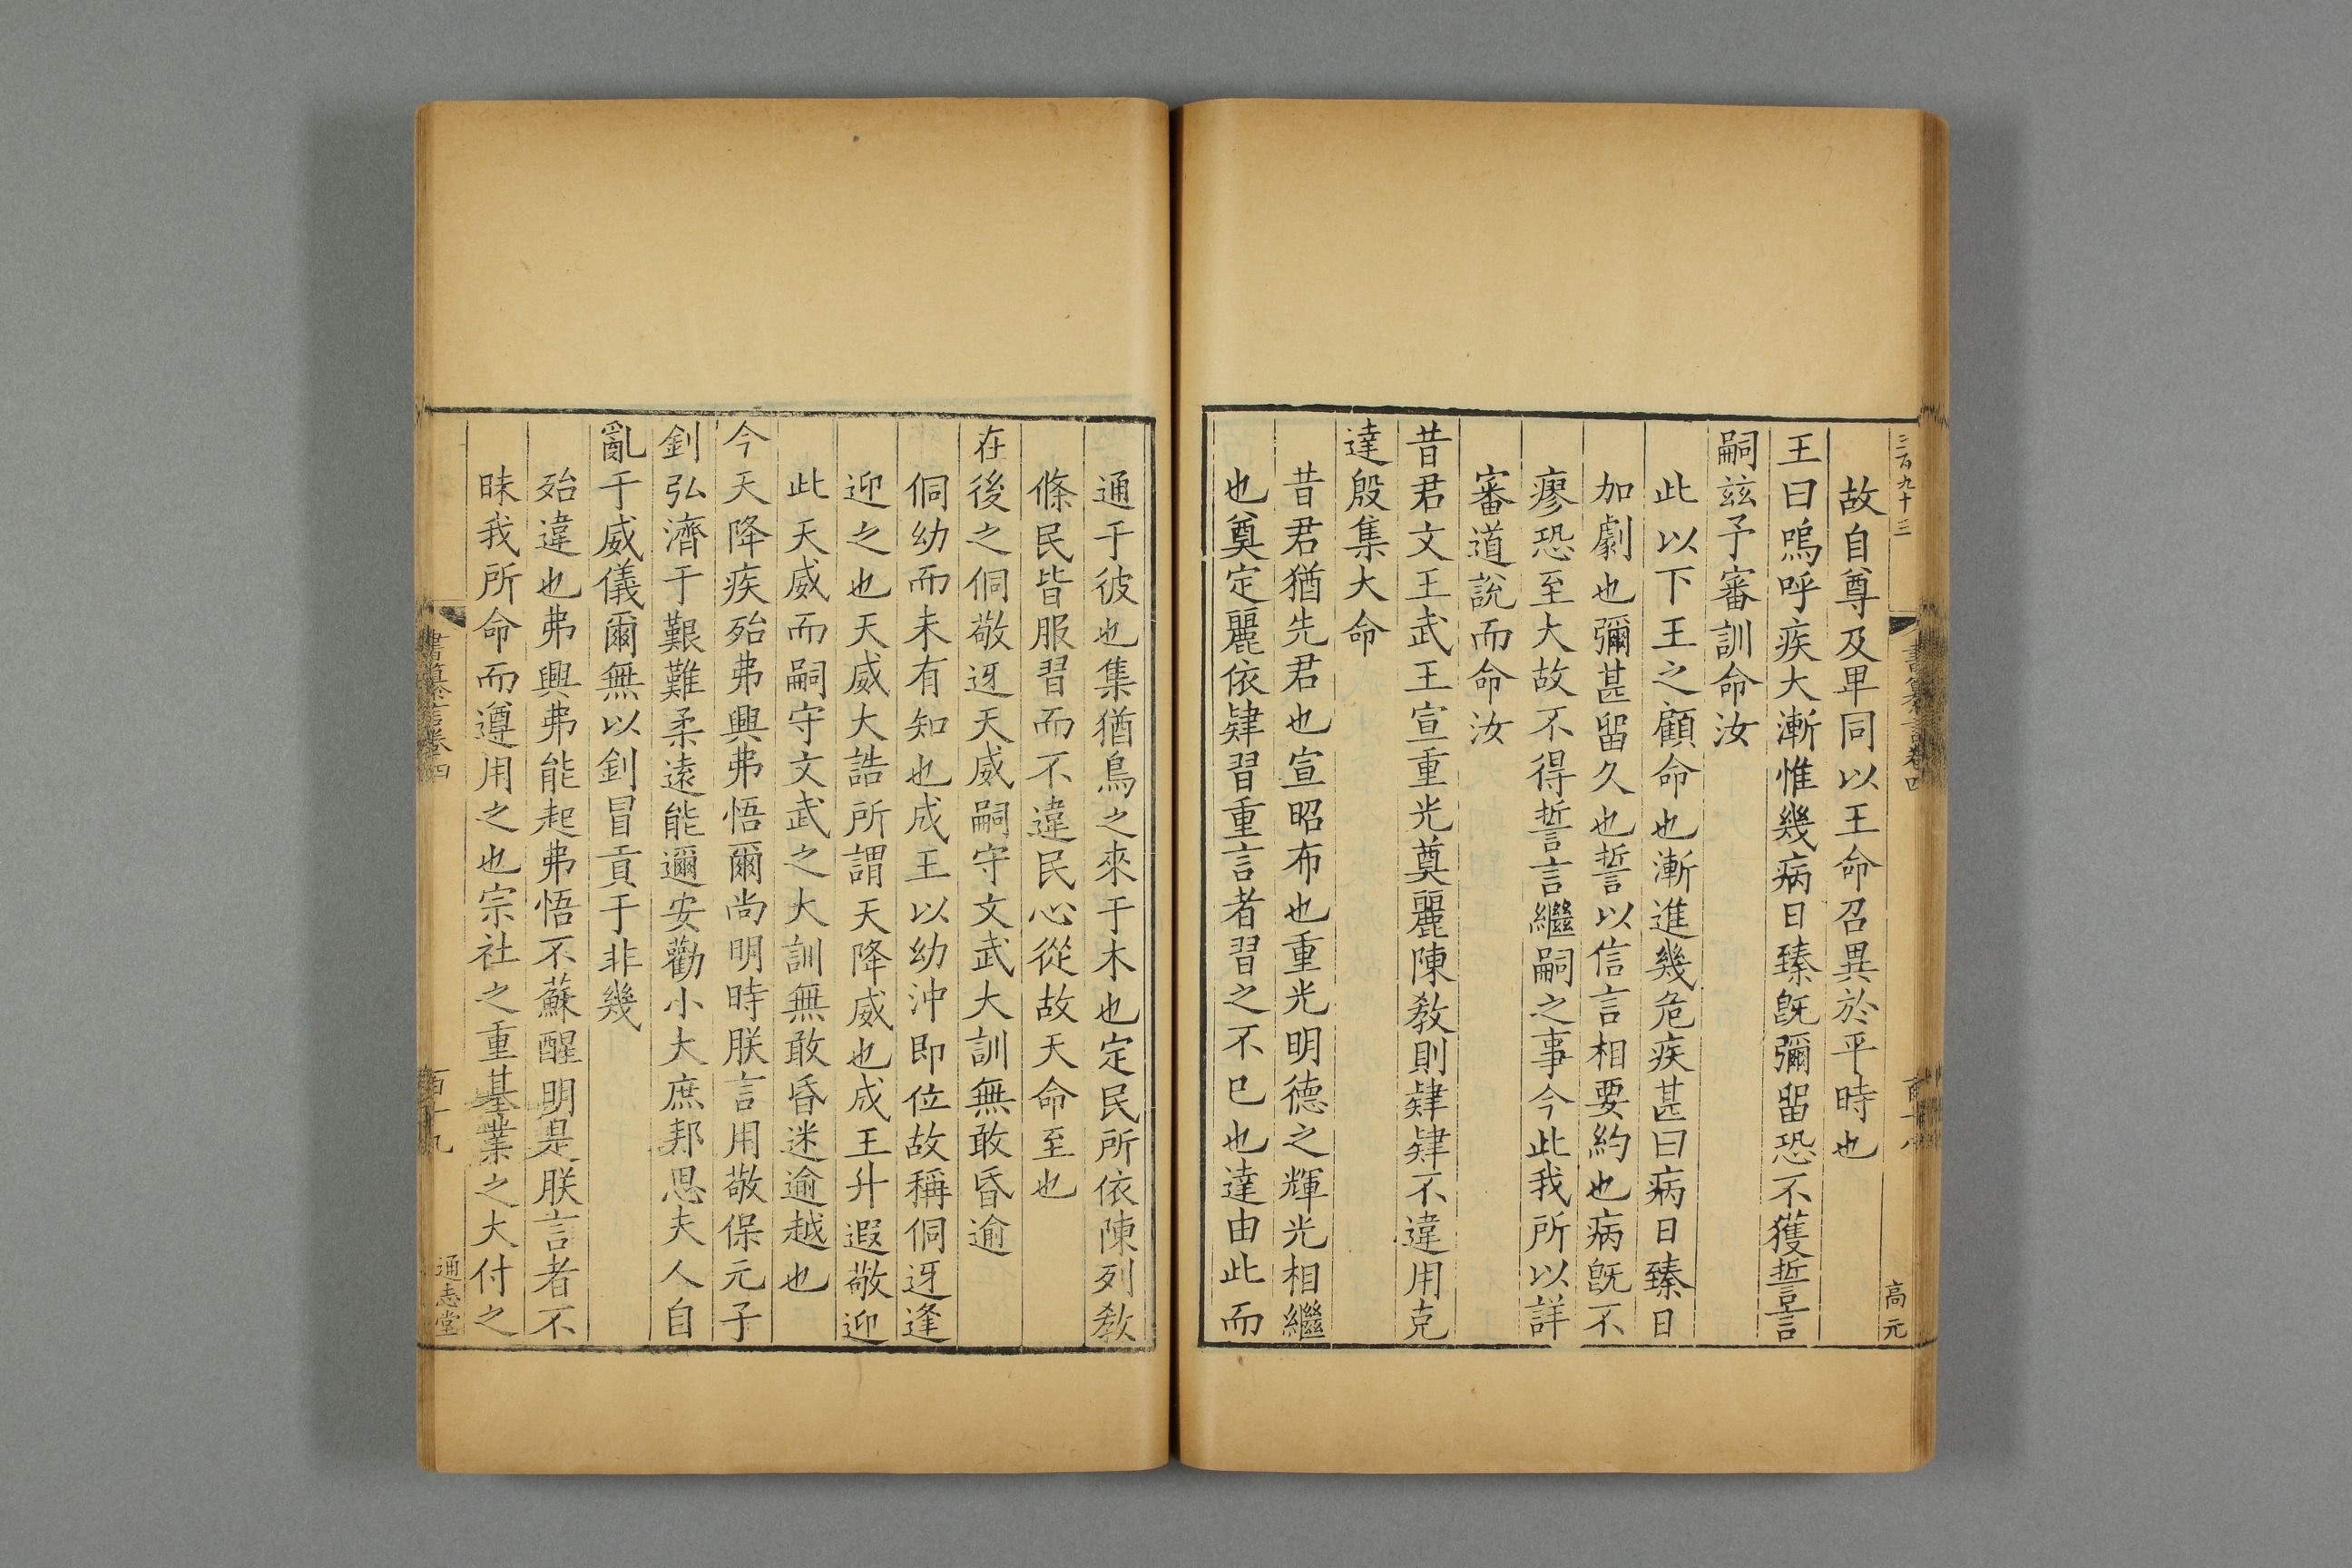 三百九十三
書纂言卷四
百十八
高元
故自尊及卑同以王命召異於平時也
王曰嗚呼疾大漸惟幾病日臻旣彌留恐不獲誓言
嗣玆予審訓命汝
此以下王之顧命也漸進幾危疾甚曰病日臻日
加劇也彌甚留久也誓以信言相要約也病旣不
瘳恐至大故不得誓言繼嗣之事今此我所以詳
審道說而命汝
昔君文王武王宣重光奠麗陳敎則肄肄不違用克
達殷集大命
昔君猶先君也宣昭布也重光明德之輝光相繼
也奠定麗依肄習重言者習之不已也達由此而
通于彼也集猶鳥之來于木也定民所依陳列敎
條民皆服習而不違民心從故天命至也
在後之侗敬迓天威嗣守文武大訓無敢昏逾
侗幼而未有知也成王以幼沖即位故稱侗迓逢
迎之也天威大誥所謂天降威也成王升遐敬迎
此天威而嗣守文武之大訓無敢昏迷逾越也
今天降疾殆弗興弗悟爾尚明時朕言用敬保元子
釗弘濟于艱難柔遠能邇安勸小大庶邦思夫人自
亂于威儀爾無以釗冒貢于非幾
殆違也弗興弗能起弗悟不蘇醒明是朕言者不
昧我所命而遵用之也宗社之重基業之大付之
書纂言卷四
百十九
通志堂